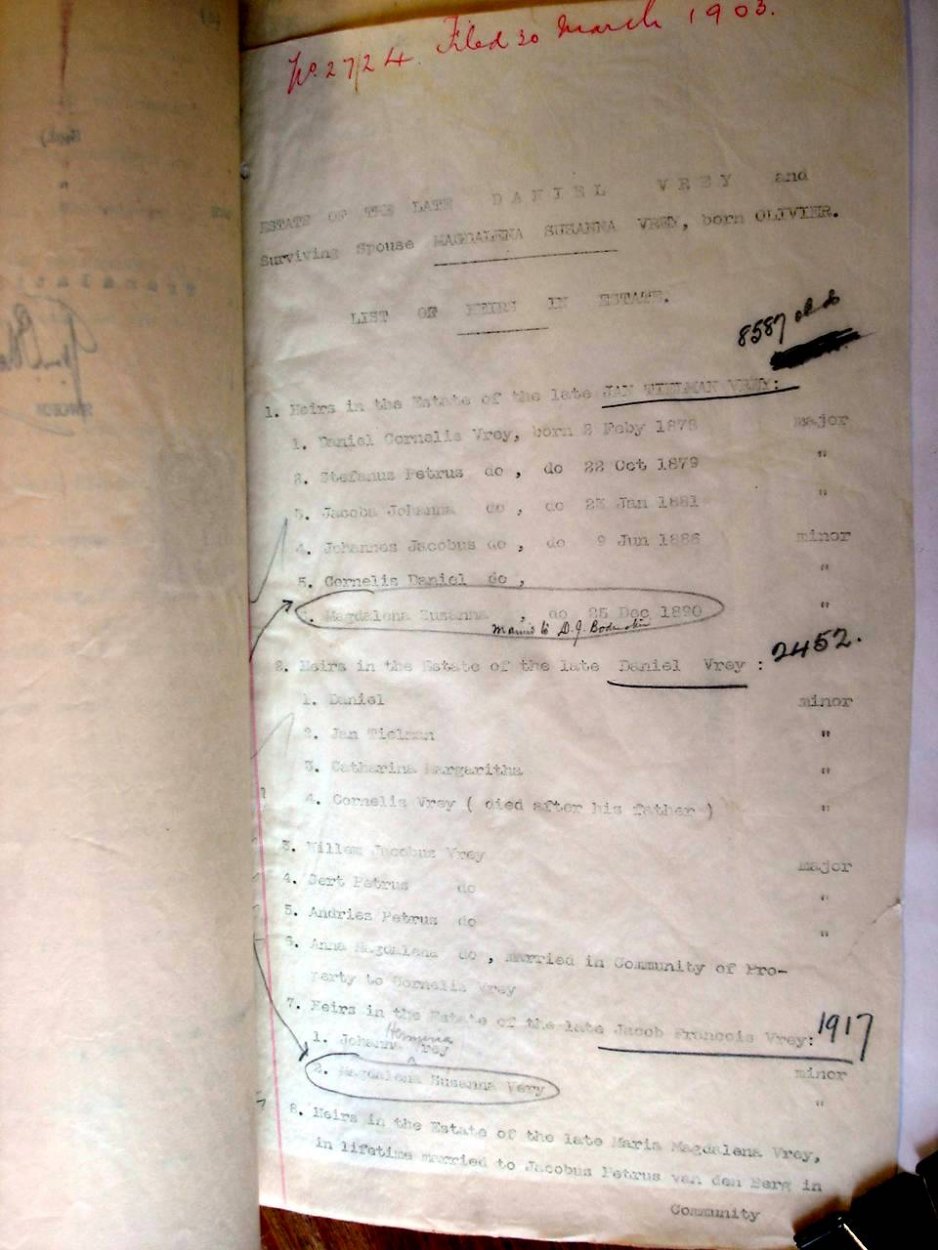 No. 27/24. Filed 30 March 1903.
ESTATE OF THE LATE DANIEL VREY and
Surviving Spouse MAGDALENA SUSANNA VREY, born OLIVIER.
LIST OF HEIRS IN ESTATE.
8587
1. Heirs in the Estate of the late JAN TIELMAN VREY:
1. Daniel Cornelis Vrey, born 2 Feby 1878 major
2. Stefanus Petrus do , do 22 Oct 1879 "
3. Jacoba Johanna do , do 23 Jan 1881 "
4. Johannes Jacobus do , do 9 Jun 1886 minor
5. Cornelis Daniel do , "
. Magdalena Susanna , do 25 Dec 1890 "
Married to D.J.
2. Heirs in the Estate of the late Daniel Vrey : 2452.
1. Daniel minor
2. Jan Tielman "
3. Catharina Margaritha "
4. Cornelis Vrey ( died after his father ) "
3. Willem Jacobus Vrey major
4. Gert Petrus do "
5. Andries Petrus do "
6. Anna Magdalena do , married in Community of Pro-
perty to Cornelis Vrey
7. Heirs in the Estate of the late Jacob Francois Vrey: 1917
1. Johanna Vrey minor
2. Magdalena Susanna Very "
8. Heirs in the Estate of the late Maria Magdalena Vrey,
in lifetime married to Jacobus Petrus van den Berg in
Community